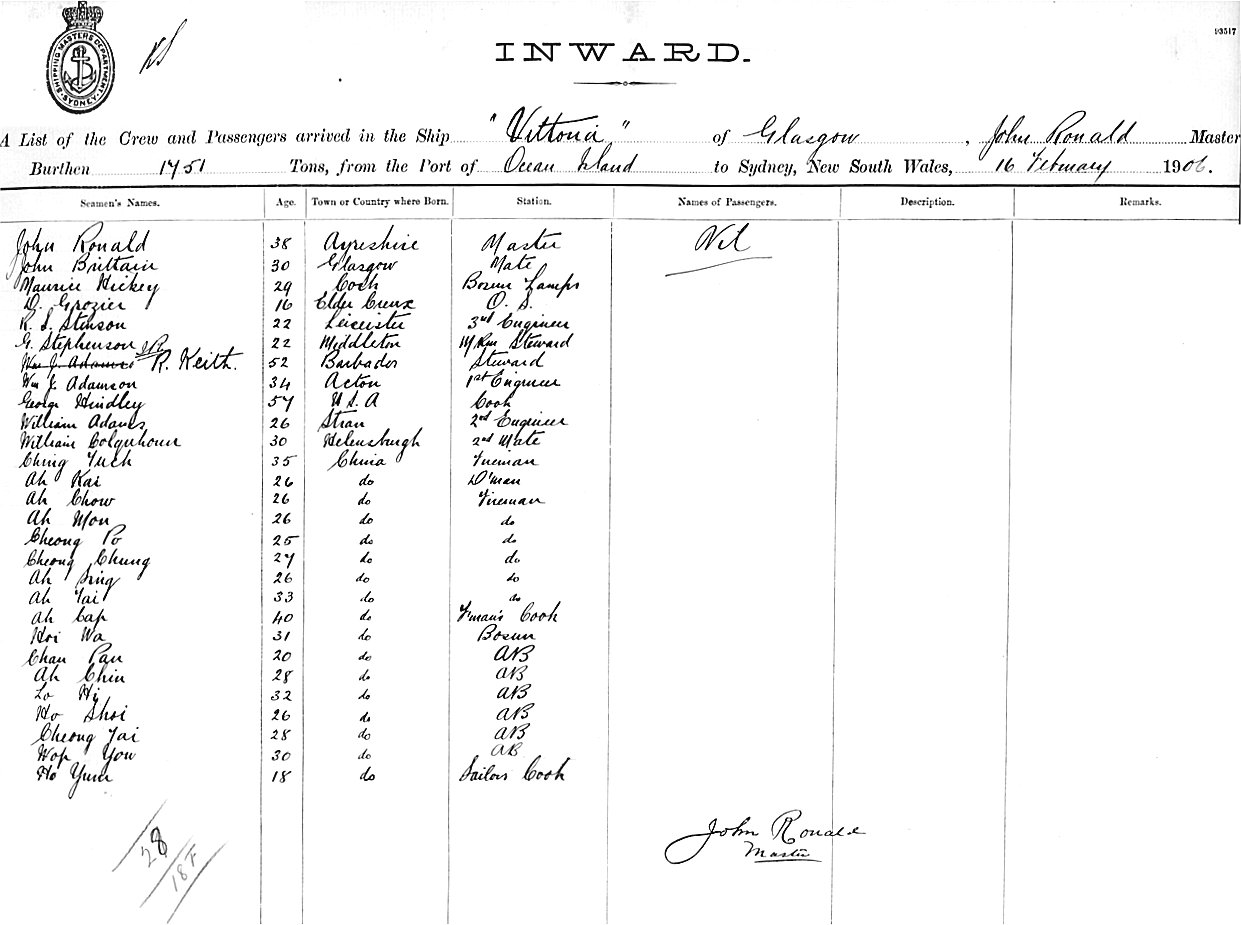 93517
SHIPPING MASTERS DEPARTMENT. SYDNEY.
INWARD.
A List of the Crew and Passengers arrived in the Ship "Vittoria" of Glasgow, John Ronald Master
Burthen 1751 Tons, from the Port of Ocean Island to Sydney, New South Wales, 16 February 1906.
Seamen's Names. Age. Town or Country where Born. Station. Names of Passengers. Description. Remarks.
John Ronald 38 Ayreshire Master Nil
John Brittain 30 Glasgow Mate
Maurice Hickey 29 Cork Bosun Lamps
D. Grozier 16 Elder O.S.
R. S. Stenson 22 Leicister 3rd Engineer
G. Stephenson 22 Middleton M Rm Steward
Wm J. Adamson JR R. Keith. 52 Barbados Steward
Wm J. Adamson 34 Acton 1st Engineer
George Hindley 57 U S A Cook
William Adams 26 Stran 2nd Engineer
William Colquhoun 30 Helensburgh 2nd Mate
Ching Yuch 35 China Fireman
Ah Kai 26 do D'man
Ah Chow 26 do Fireman
Ah Mon 26 do do
Cheong Po 25 do do
Cheong Chung 27 do do
Ah Sing 26 do do
Ah Tai 33 do do
Ah Cap 40 do F'man's Cook
Hoi Wa 31 do Bosun
Chan Pan 20 do AB
Ah Chin 28 do AB
Lo Hi 32 do AB
Ho Shoi 26 do AB
Cheong Tai 28 do AB
Wop You 30 do AB
Ho Yum 18 do Sailors Cook
John Ronald
Master
28
18F